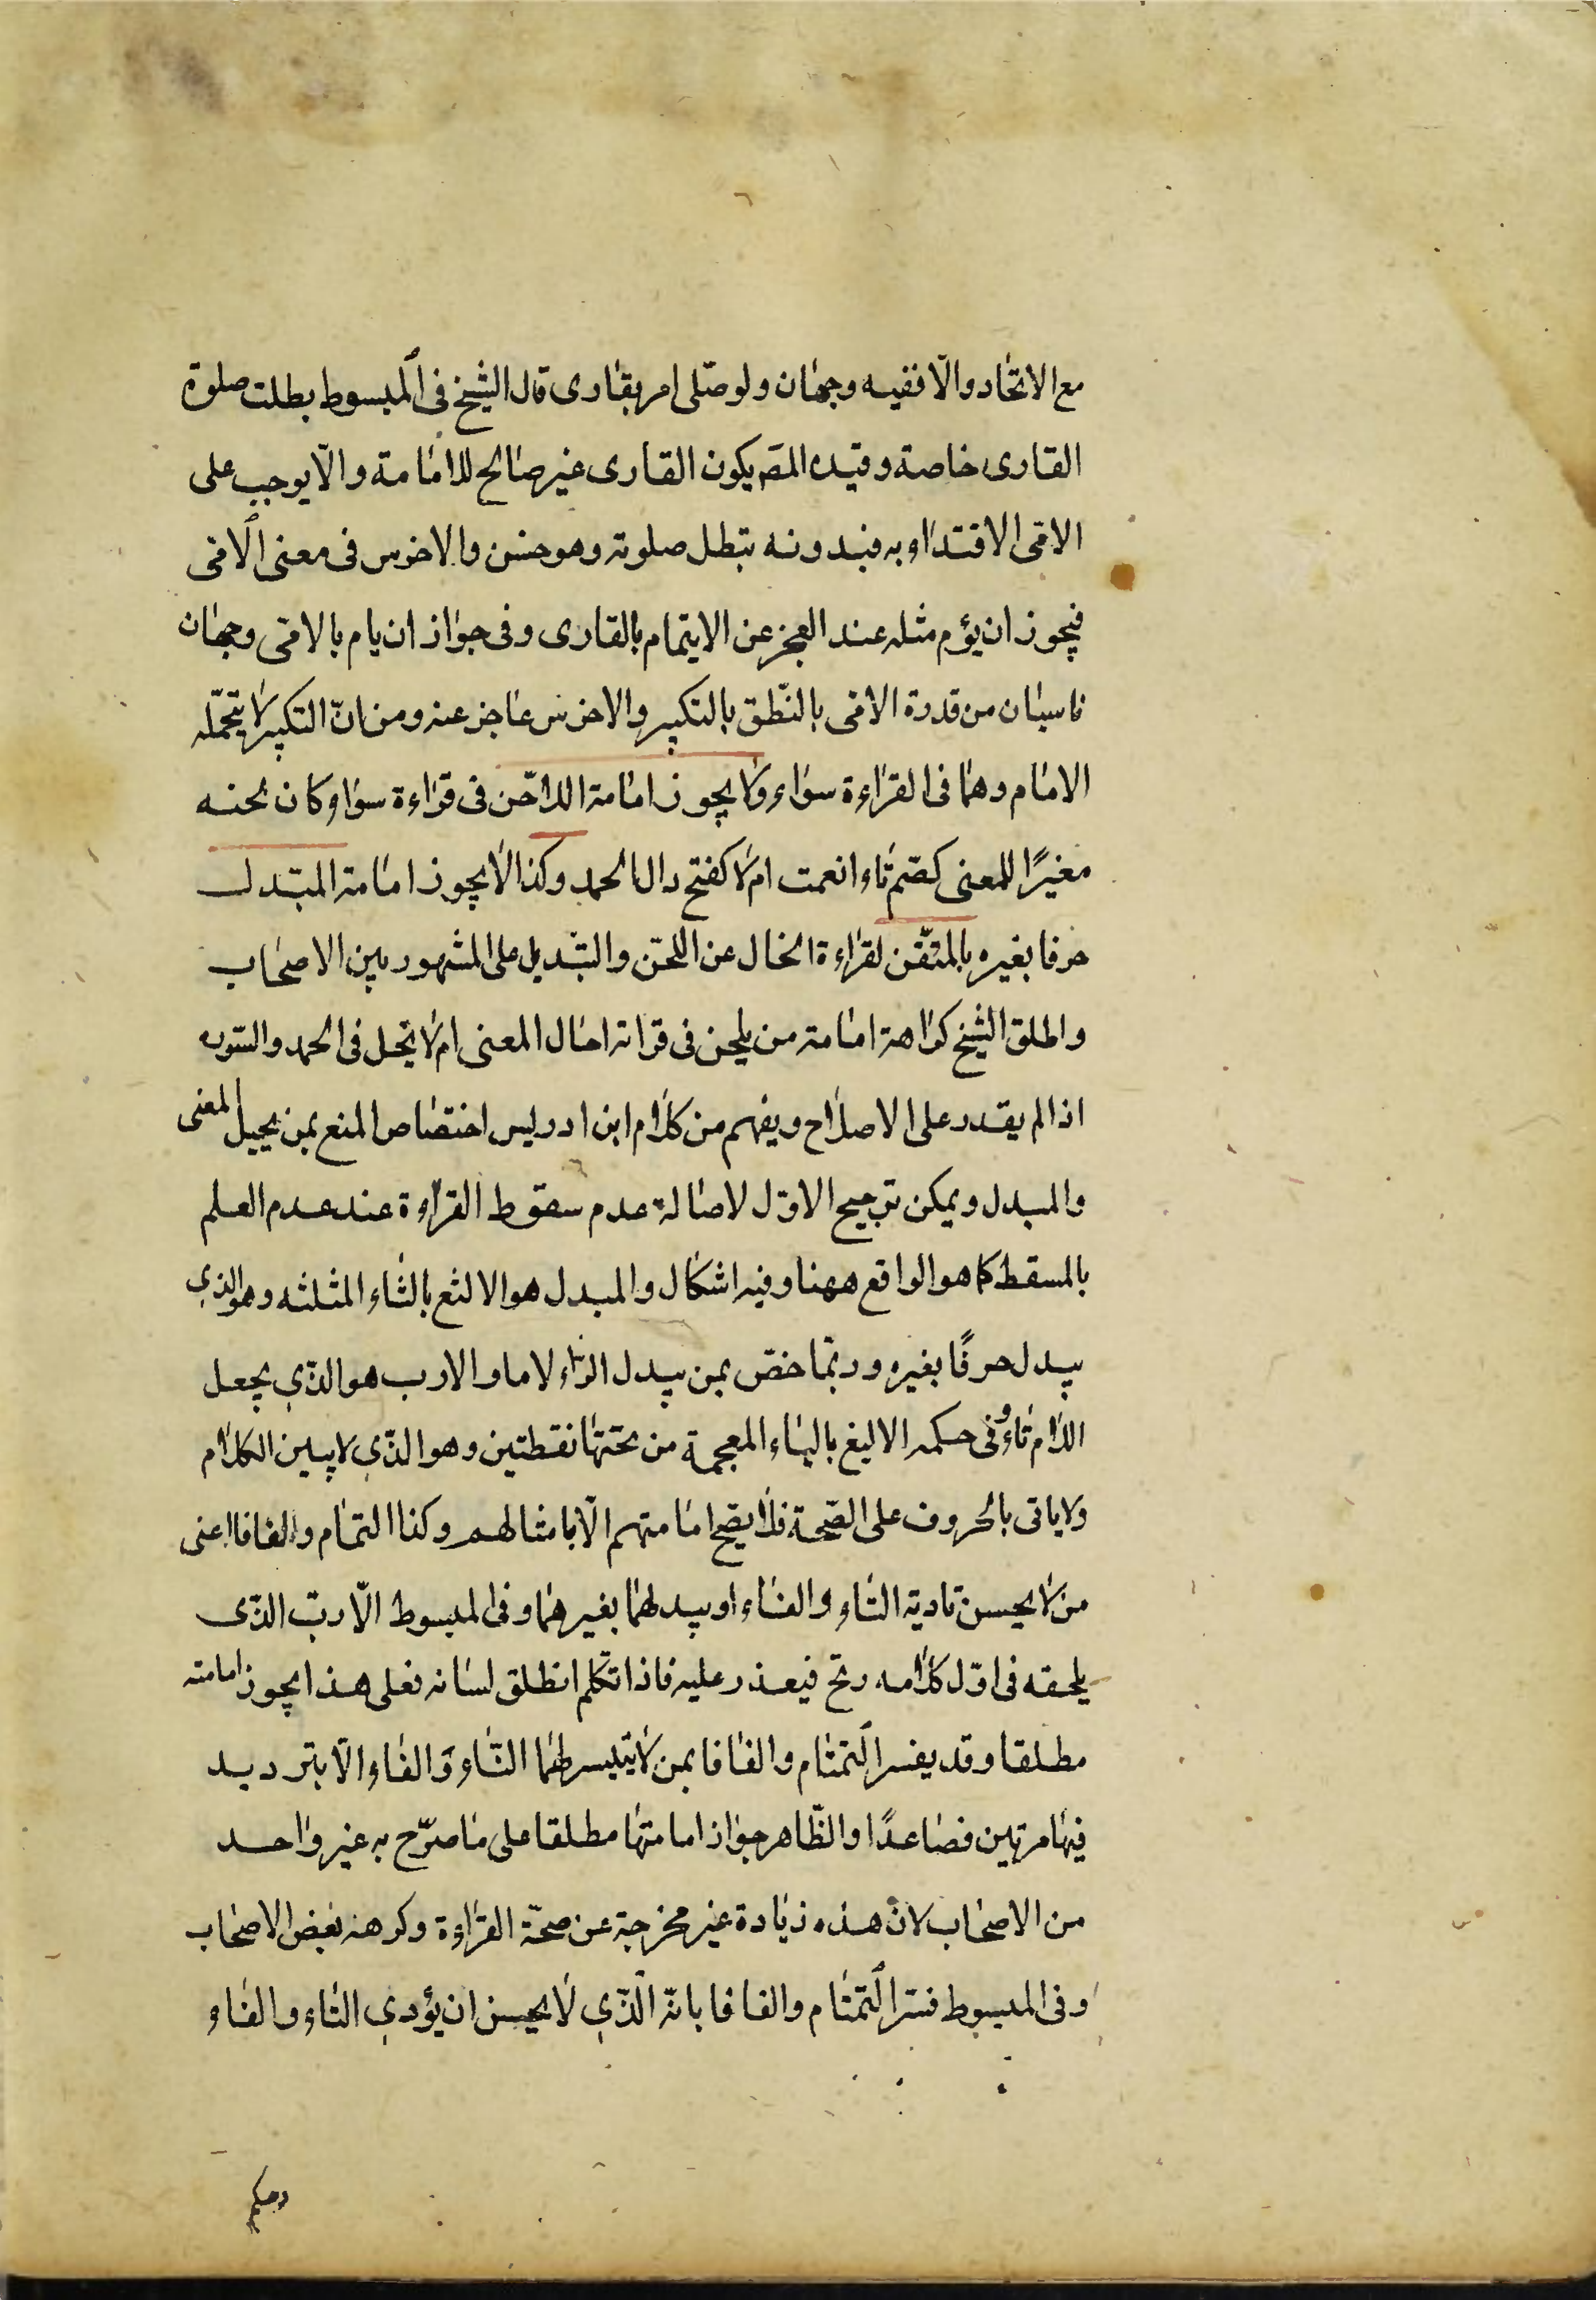 مع الاتحاد والّا ففيه وجهان ولو صلّى امى بقارى قال الشيخ فى المبسوط بطلت صلوة
القارى خاصة وقيده المصَ بكون القارى غير صالح للامامة والّا يوجب على
الامّى الاقتداء به فبدونه تبطل صلوته وهو حسن والاخرس فى معنى الامّى
فيجوز ان يؤم مثله عند العجز عن الايتمام بالقارى وفى جواز ان يام بالامّى وجهان
ناسبان من قدرة الامّى بالنّطق بالتكبير والاخرس عاجز عنه ومن انّ التكبير لا يتحمّله
الامام وهما فى القراءة سواء ولا يجوز امامة اللاحن فى قراءة سواء كان لحنه
مغيرًا للمعنى كضم تاء انعمت ام لا كفتح دال الحمد وكذا لا يجوز امامة المبدل
حرفا بغيره بالمتقن لقراءة الخال عن اللحن والتبديل على المشهور بين الاصحاب
واطلق الشيخ كراهة امامة من يلحن فى قراته احال المعنى ام لا يحل فى الحمد والسّورة
اذا لم يقدر على الاصلاح ويفهم من كلام ابن ادريس اختصاص المنع بمن يحيل المعنى
والمبدل ويمكن ترجيح الاول لاصالة عدم سقوط القراءة عند عدم العلم
بالمسقط كما هو الواقع ههنا وفيه اشكال والمبدل هو الالثع بالثاء المثلثه وهو الذي
يبدل حرفًا بغيره وربّما خصّ بمن يبدل الراء لاما والارب هو الذّي يجعل
اللام تاء وفى حكمه الاليغ بالياء المعجمة من تحتها نقطتين وهو الذّي لا يبين الكلام
ولا ياتى بالحروف على الصّحة فلا يصح امامتهم الّا بامثالهم وكذا التمتام والفافا اعنى
من لا يحسن تادية التاء والفاء او يبدلهما بغيرهما وفى المبسوط الّارتّ الذّى
يلحقه فى اوّل كلامه رتج فيعذر عليه فاذا تكلم انطلق لسانه فعلى هذا يجوز امامته
مطلقا وقد يفسر التمتام والفافا بمن لا يتيسر لهما التاء والفاء الّا بترديد
فيها مرتين فصاعدًا والظّاهر جواز امامتها مطلقا على ما صرّح به غير واحد
من الاصحاب لان هذه زيادة غير مخرجة عن صحّة القراءة وكرهه بعض الاصحاب
وفى المبسوط فسّر التمتام والفافا بانّه الّذّي لا يحسن ان يؤدي التاء والفاء